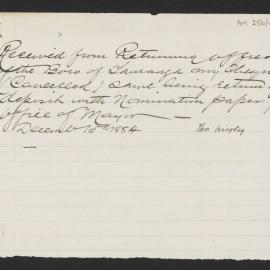 Received from Returning Office
of the Boro of Tauranga my Cheque
(Cancelled) same being return
deposit with Nomination paper
office of Mayor —
December 15th 1884